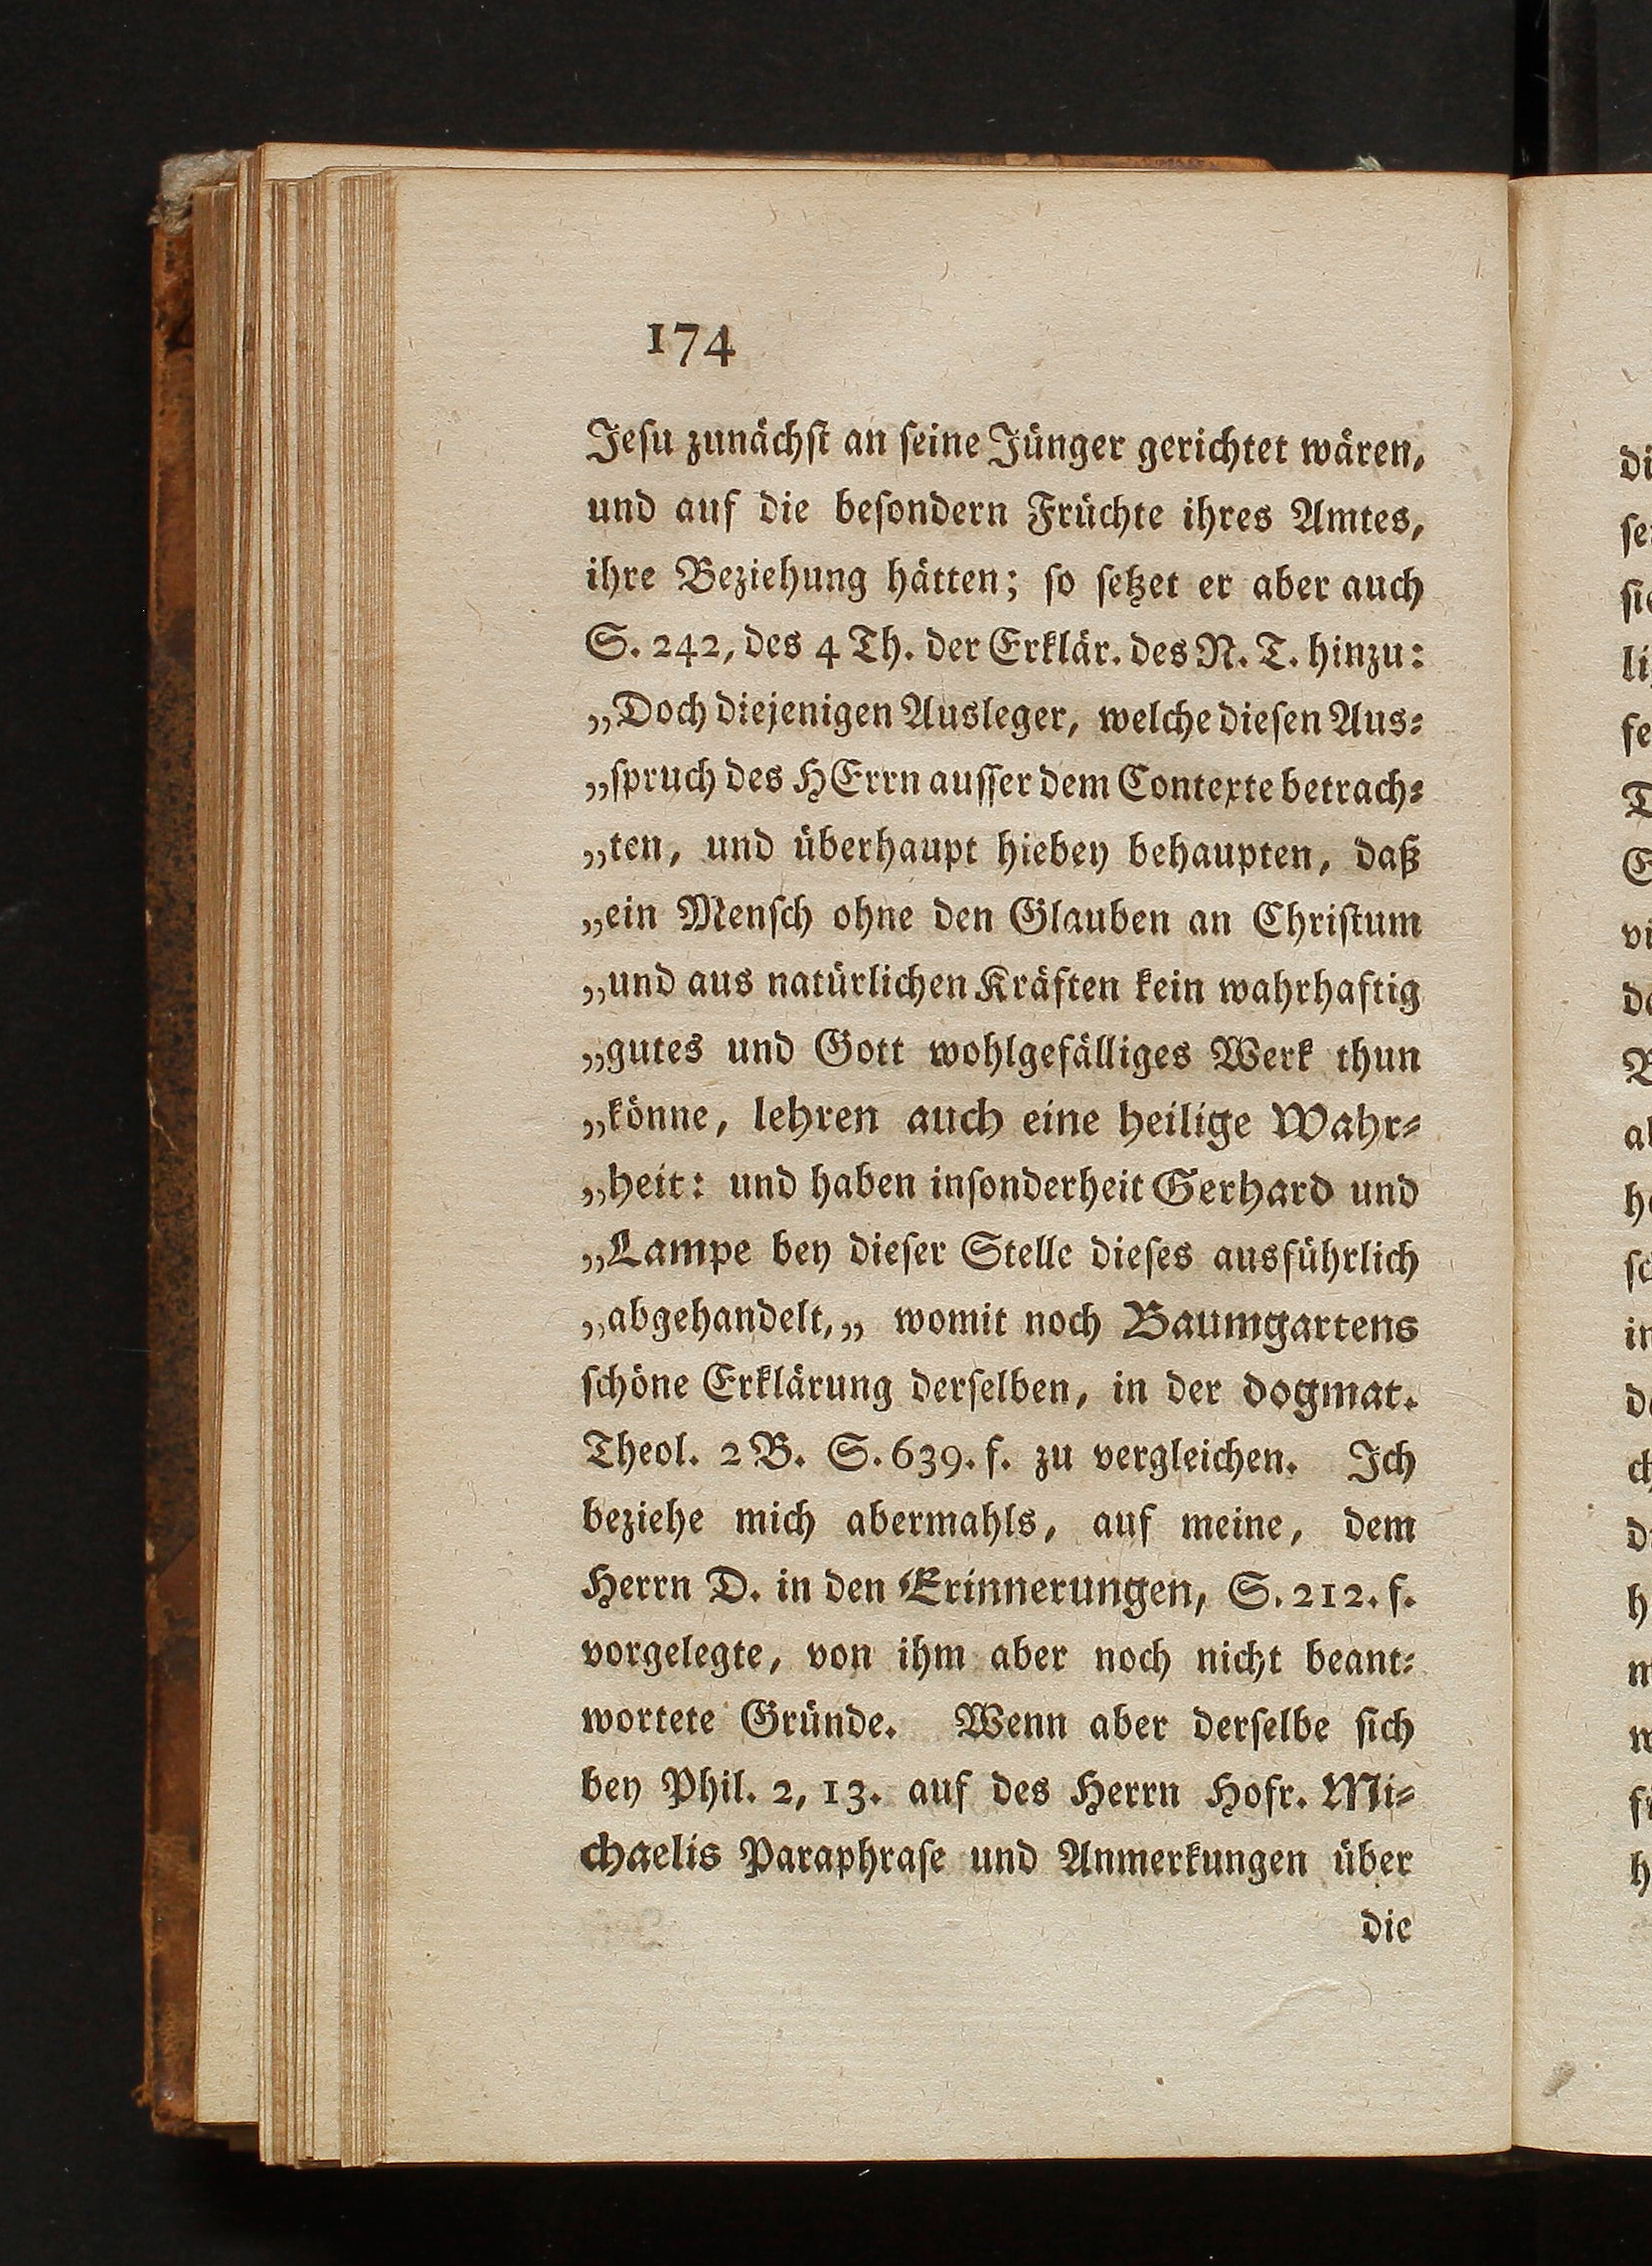 174
Jeſu zunächſt an ſeine Jünger gerichtet wären,
und auf die beſondern Früchte ihres Amtes,
ihre Beziehung hätten; ſo ſetzet er aber auch
S. 242, des 4 Th. der Erklär. des N. T. hinzu:
„Doch diejenigen Ausleger, welche dieſen Aus⸗
„ſpruch des HErrn auſſer dem Contexte betrach⸗
„ten, und überhaupt hiebey behaupten, daß
„ein Menſch ohne den Glauben an Chriſtum
„und aus natürlichen Kräften kein wahrhaftig
„gutes und Gott wohlgefälliges Werk thun
„könne, lehren auch eine heilige Wahr⸗
„heit: und haben inſonderheit Gerhard und
„Lampe bey dieſer Stelle dieſes ausführlich
„abgehandelt,„ womit noch Baumgartens
ſchöne Erklärung derſelben, in der dogmat.
Theol. 2 B. S. 639. f. zu vergleichen. Ich
beziehe mich abermahls, auf meine, dem
Herrn D. in den Erinnerungen, S. 212. f.
vorgelegte, von ihm aber noch nicht beant⸗
wortete Gründe. Wenn aber derſelbe ſich
bey Phil. 2, 13. auf des Herrn Hofr. Mi⸗
chaelis Paraphraſe und Anmerkungen über
die